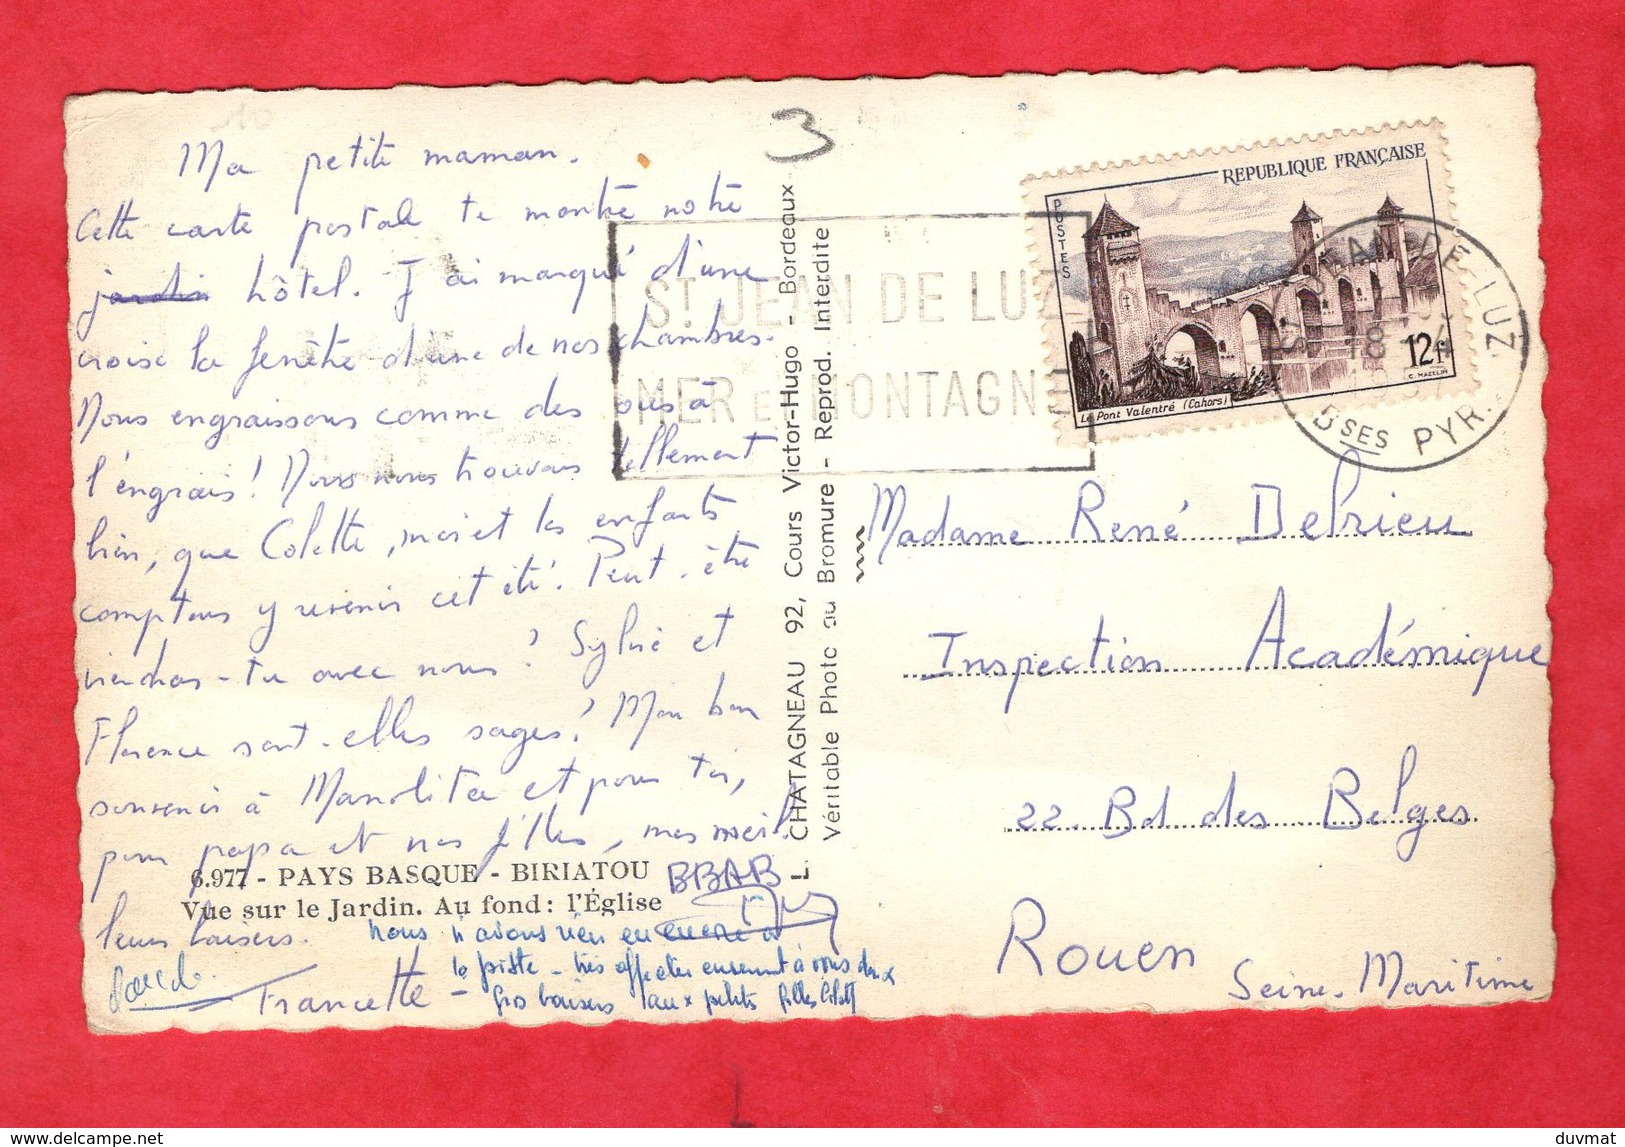 3
Ma petite maman.
Cette carte postale te montre notre
jardin hôtel. J'ai marqué d'une
croix la fenêtre d'une de nos chambres.
Nous engraissons comme des oies à
l'engrais! Nous nous trouvons tellement
bien, que Colette, moi et les enfants
comptons y revenir cet été. Peut-être
viendras-tu avec nous? Sylvie et
Florence sont-elles sages? Mon bon
souvenir à Manolita et pour toi,
pour papa et nos filles, mes meil
leurs baisers.
Francette
6.977 - PAYS BASQUE - BIRIATOU
Vue sur le Jardin. Au fond: l'Église
BBAB
nous n'avons rien eu encore à
la piste - très affectueusement à vous deux
gros baisers aux petites filles
L. CHATAGNEAU 92, Cours Victor-Hugo - Bordeaux
Véritable Photo au Bromure - Reprod. Interdite
ST JEAN DE LUZ
MER ET MONTAGNE
REPUBLIQUE FRANÇAISE
POSTES
12f
Le Pont Valentré (Cahors)
C. MAZELIN
ST JEAN DE LUZ
18
BSES PYR.
Madame René Delrieu
Inspection Académique
22 Bd des Belges
Rouen
Seine-Maritime
duvmat